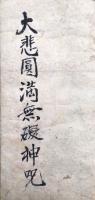 大悲圓滿無礙神咒